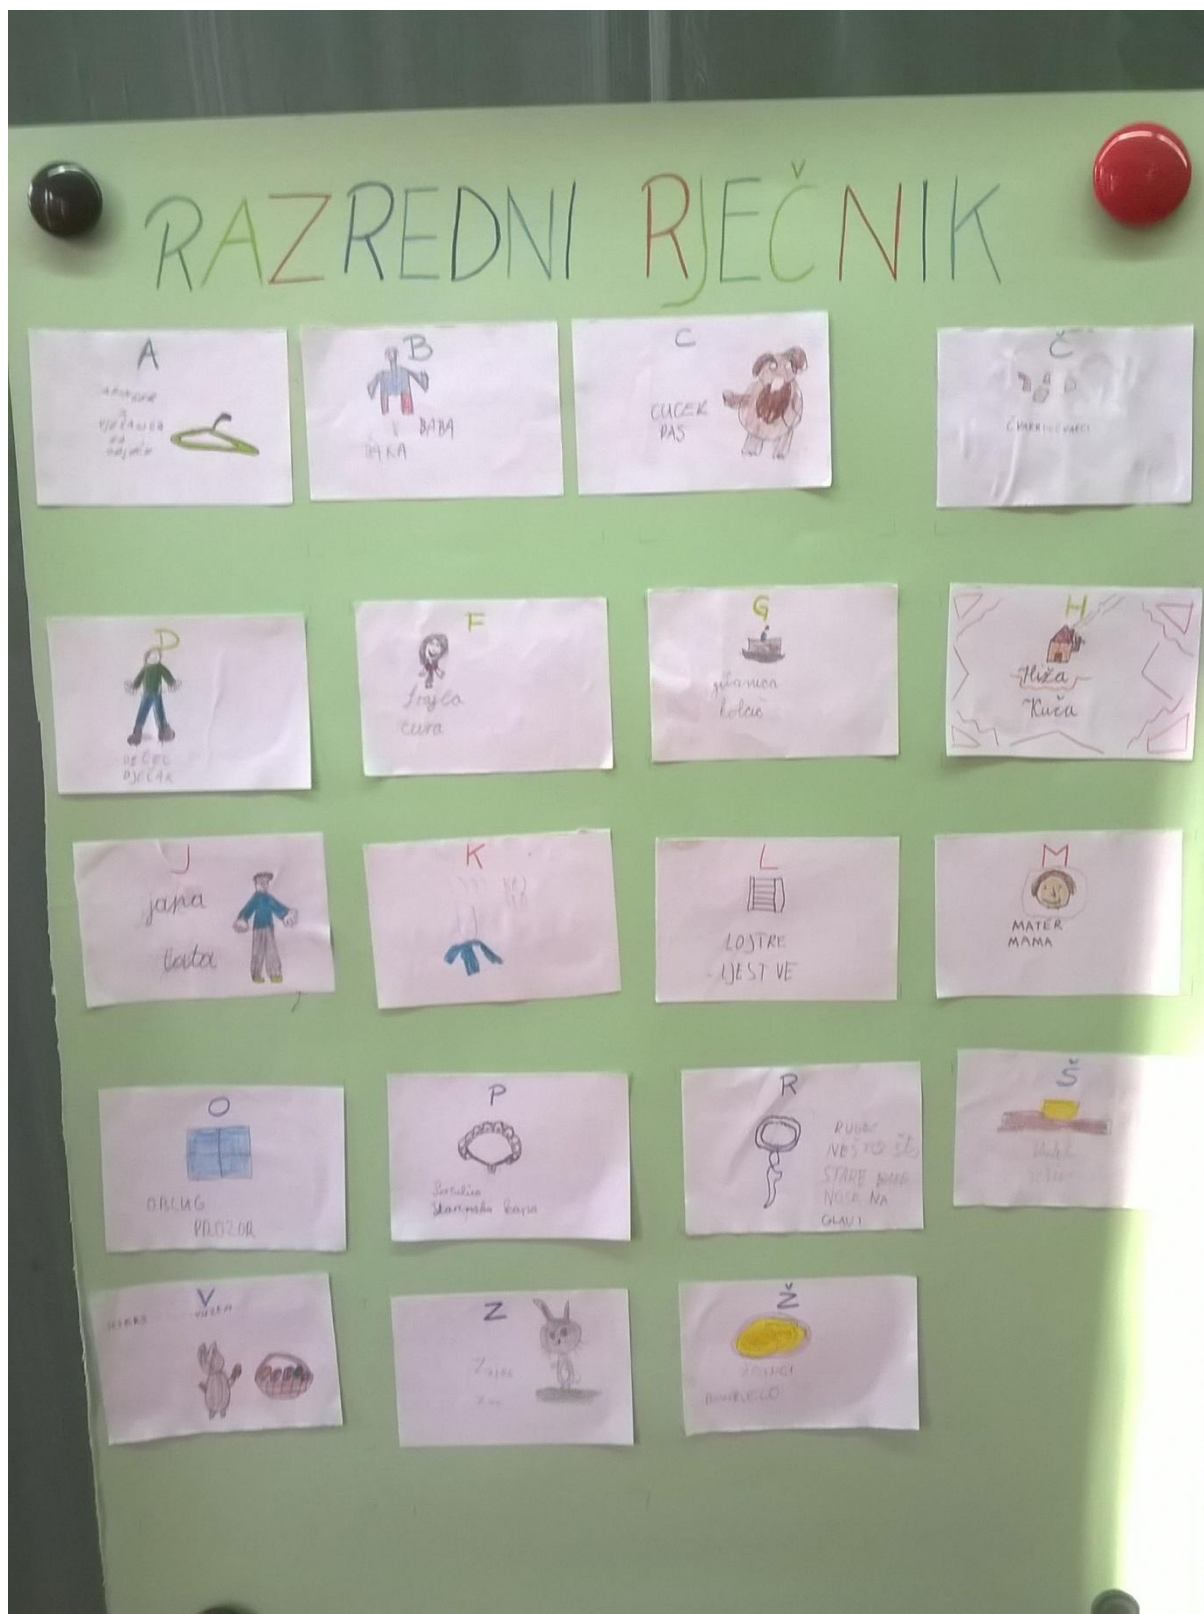 RAZREDNI RJEČNIK
A
ZA
B
BABA
BAKA
C
CUCEK
PAS
Č
D
DEČEC
DJEČAK
F
frajla
cura
G
gibanica
kolač
H
Hiža
Kuća
J
japa
tata
K
L
LOJTRE
LJESTVE
M
MATER
MAMA
O
OBLUG
PROZOR
P
kapa
R
RUBEC
NEŠTO ŠTO
STARE BABE
NOSE NA
GLAVI
Š
V
VUZEM
Z
Zajec
Ž